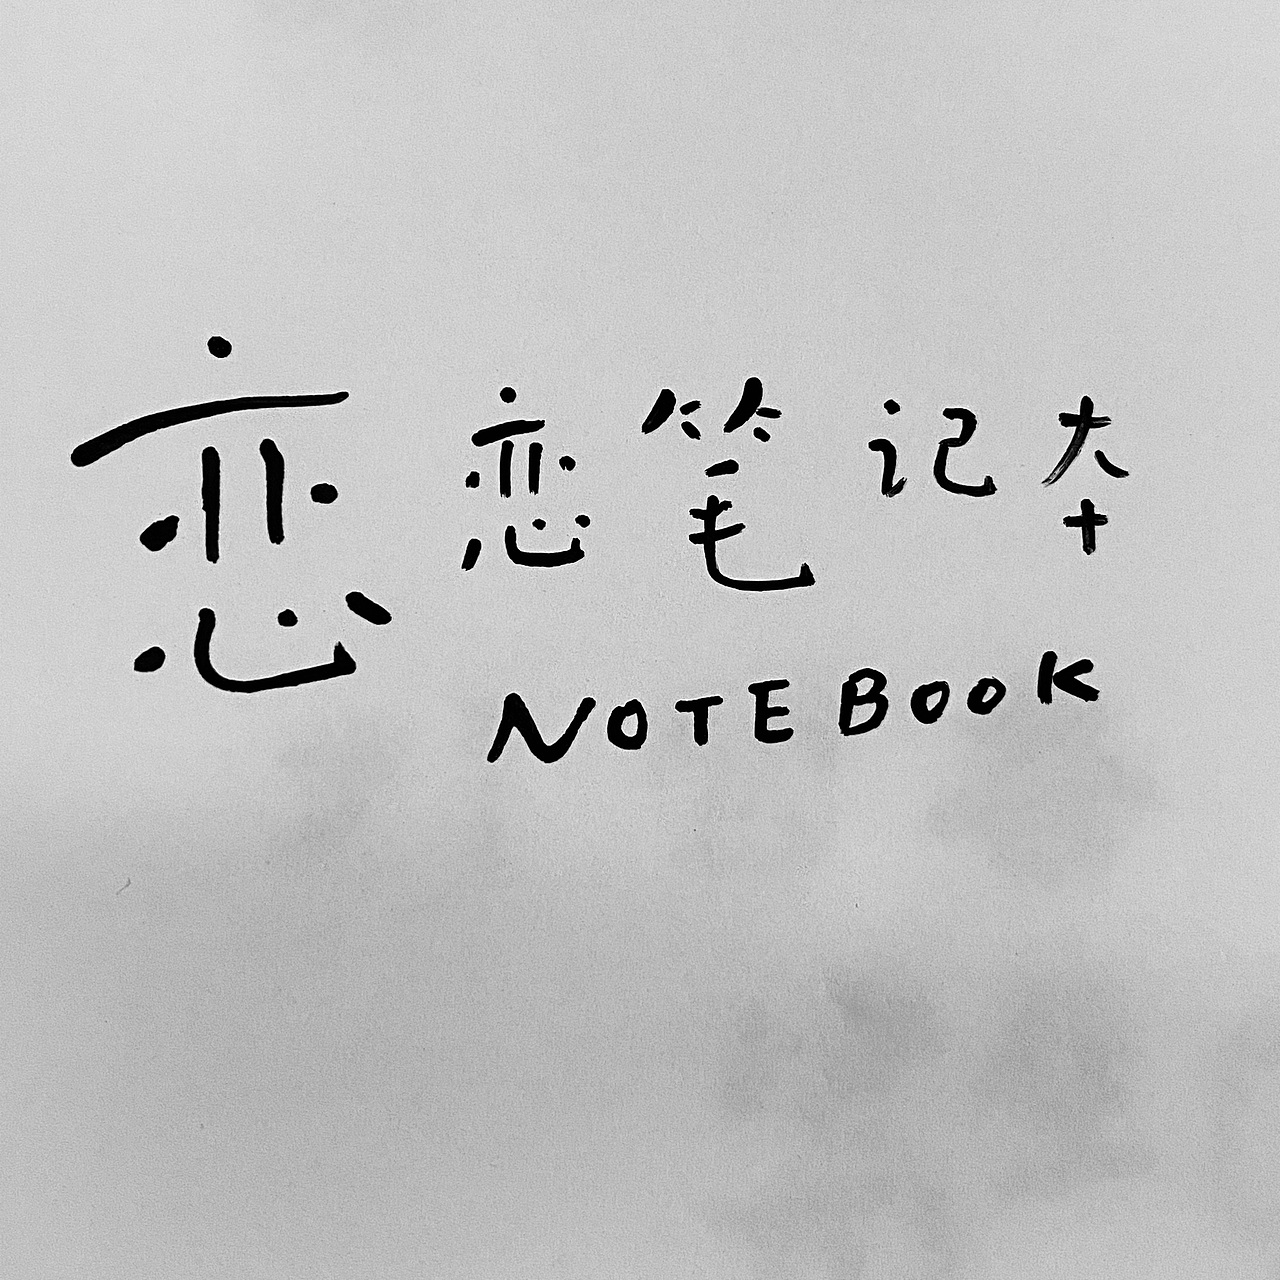 恋恋笔记本
NOTEBOOK